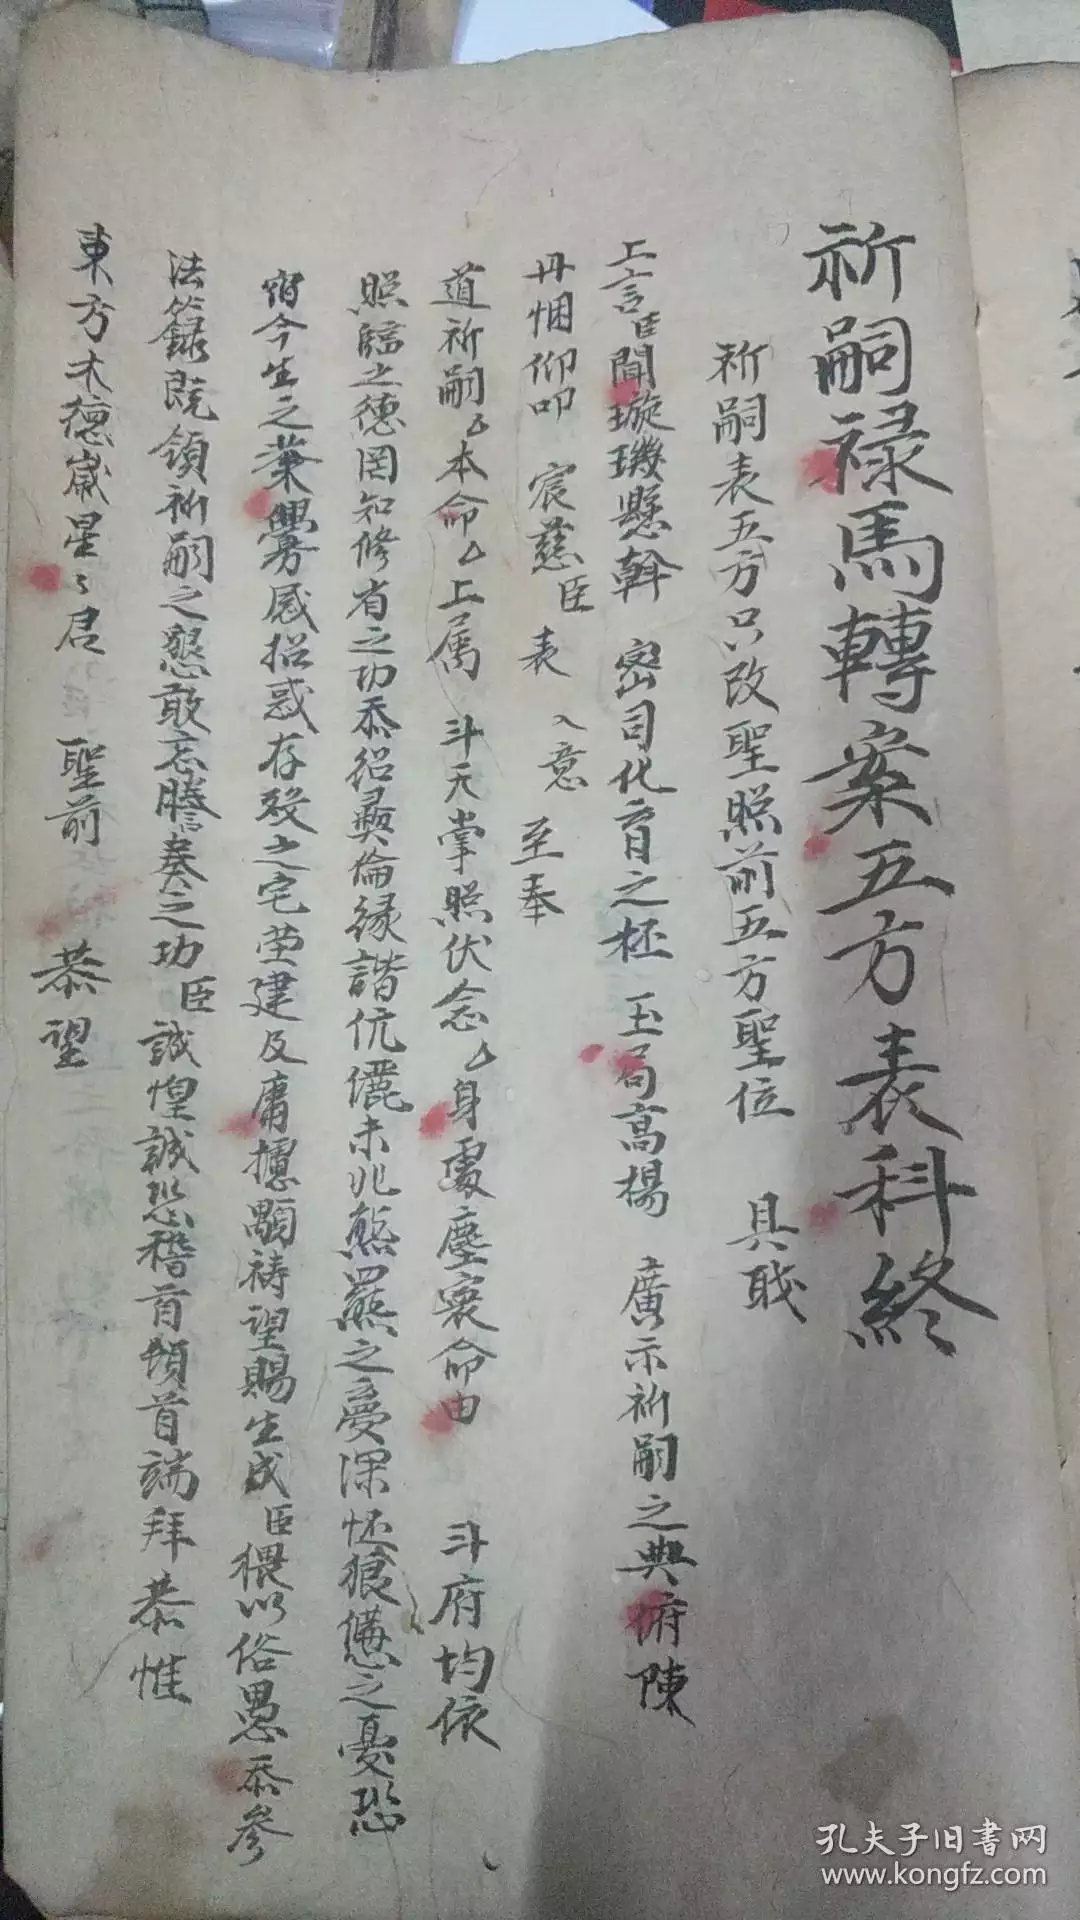 祈嗣禄馬轉案五方表科終
祈嗣表五方只改聖照前五方聖位 具職
上言臣聞璇璣懸斡 密司化育之柸 玉局高揚 廣示祈嗣之典俯陳
丹悃仰叩 宸慈臣 表 入意 至奉
道祈嗣厶本命厶上属 斗元掌照伏念厶身處塵寰命由 斗府均依
照臨之德罔知修省之功忝紹彝倫緣諧伉儷未兆熊羆之憂深怀之憂恐
宿今生之業釁感招惑存殁之宅茔建及庸攄顒祷望賜生成臣猥以俗愚忝參
法籙既領祈嗣之懇敢忘謄奏之功臣誠惶誠恐稽首頓首端拜恭惟
東方木德歲星〻君 聖前 恭望
孔夫子旧書网
www.kongfz.com